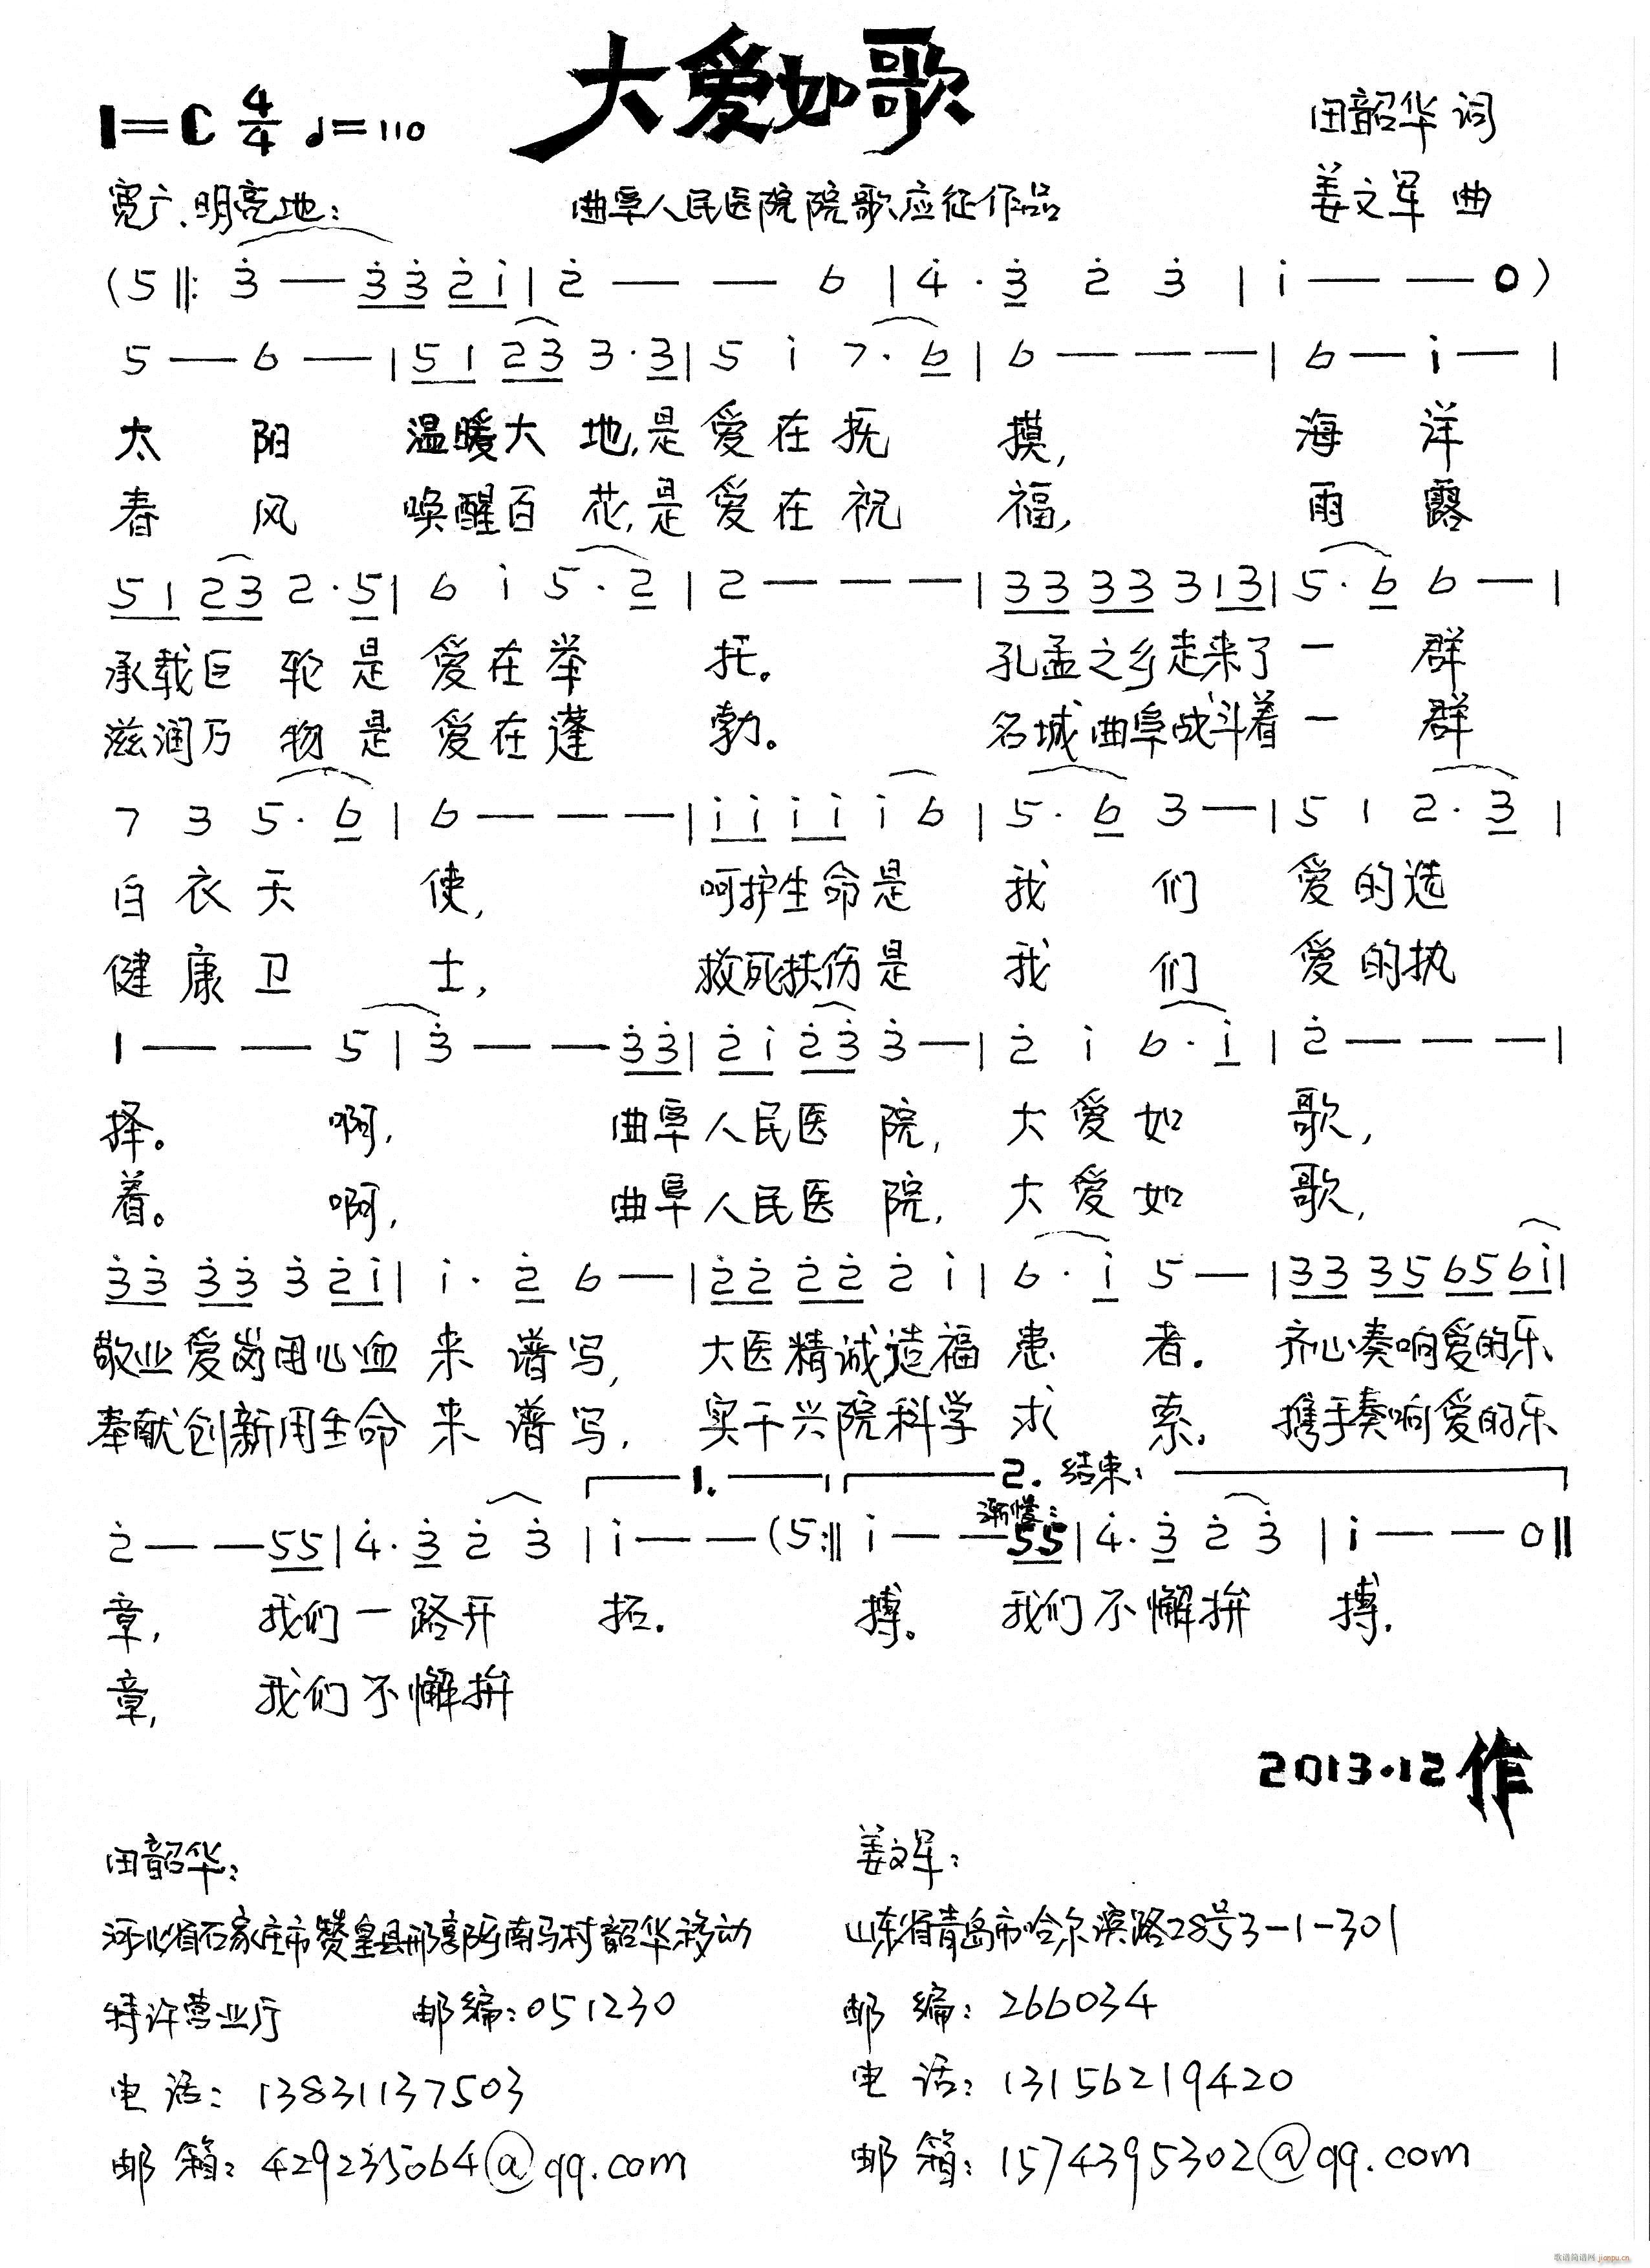 大爱如歌
1=C 4/4 ♩=110
田韶华 词
宽广、明亮地:
曲阜人民医院院歌应征作品
姜文军 曲
(5 ‖: 3̇ — 3̇ 3̇ 2̇ 1̇ | 2̇ — — 6 | 4̇ · 3̇ 2̇ 3̇ | 1̇ — — 0 )
5 — 6 — | 5 1 2 3 3 · 3 | 5 1̇ 7 · 6 | 6 — — — | 6 — 1̇ — |
太 阳 温暖大 地,是 爱 在 抚 摸, 海 洋
春 风 唤醒百 花,是 爱 在 祝 福, 雨 露
5 1 2 3 2 · 5 | 6 1̇ 5 · 2 | 2 — — — | 3 3 3 3 3 1 3 | 5 · 6 6 — |
承载巨 轮 是 爱 在 举 托。 孔孟之乡走来了 一 群
滋润万 物 是 爱 在 蓬 勃。 名城曲阜战斗着 一 群
7 3 5 · 6 | 6 — — — | 1̇ 1̇ 1̇ 1̇ 1̇ 6 | 5 · 6 3 — | 5 1 2 · 3 |
白 衣 天 使, 呵护生命是 我 们 爱 的 选
健 康 卫 士, 救死扶伤是 我 们 爱 的 执
1 — — 5 | 3̇ — — 3̇ 3̇ | 2̇ 1̇ 2̇ 3̇ 3̇ — | 2̇ 1̇ 6 · 1̇ | 2̇ — — — |
择。 啊, 曲阜人民医 院, 大 爱 如 歌,
着。 啊, 曲阜人民医 院, 大 爱 如 歌,
3̇ 3̇ 3̇ 3̇ 3̇ 2̇ 1̇ | 1̇ · 2̇ 6 — | 2̇ 2̇ 2̇ 2̇ 2̇ 1̇ | 6 · 1̇ 5 — | 3 3 3 5 6 5 6 1̇ |
敬业爱岗用心血 来 谱 写, 大医精诚造福 患 者. 齐心奏响爱的乐
奉献创新用生命 来 谱 写, 实干兴院科学 求 索. 携手奏响爱的乐
1. 2. 结束:
渐慢:
2̇ — — 5 5 | 4̇ · 3̇ 2̇ 3̇ | 1̇ — — (5 :‖ 1̇ — — 5 5 | 4̇ · 3̇ 2̇ 3̇ | 1̇ — — 0 ‖
章, 我们一路开 拓. 搏。 我们不懈拚 搏.
章, 我们不懈拚
2013.12 作
田韶华:
河北省石家庄市赞皇县邢郭乡南马村韶华移动
特许营业厅 邮编:051230
电 话: 13831137503
邮 箱: 429235064@qq.com
姜文军:
山东省青岛市哈尔滨路28号3-1-301
邮 编: 266034
电 话: 13156219420
邮 箱: 1574395302@qq.com
歌谱简谱网 jianpu.cn